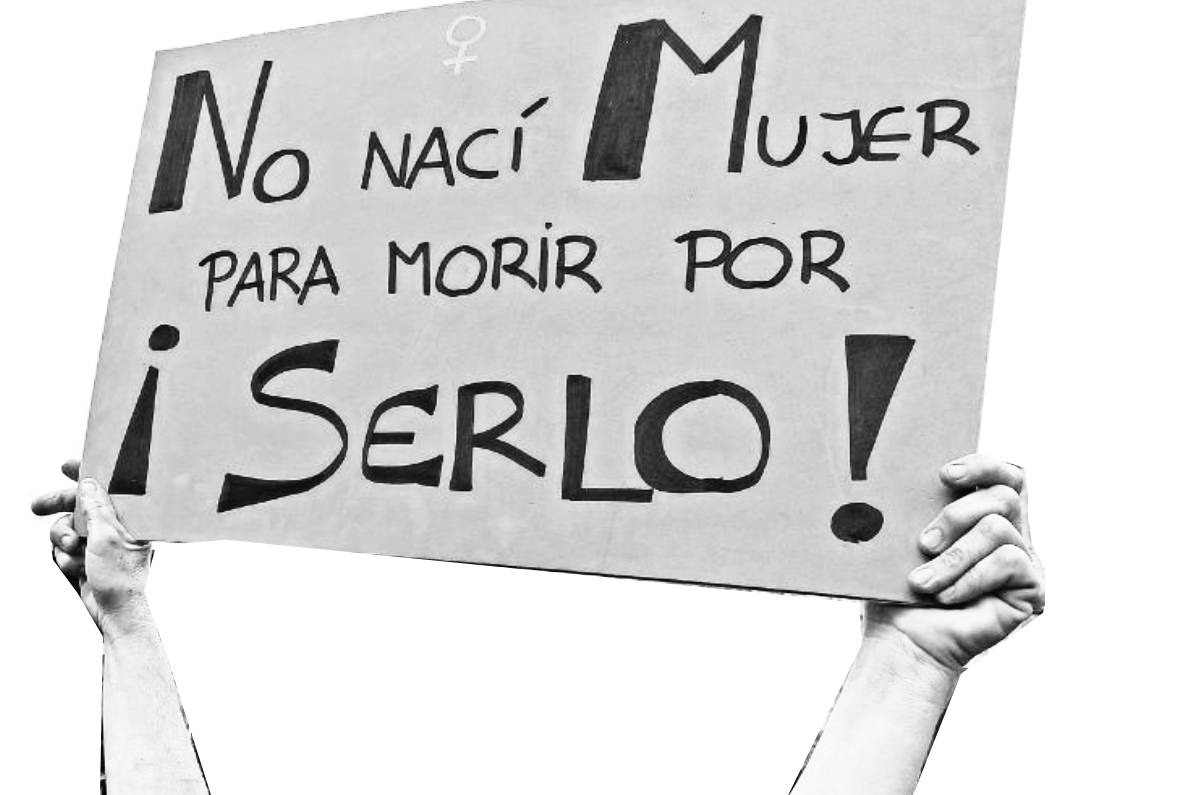 No NACÍ MUJER
PARA MORIR POR
¡SERLO!